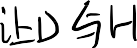 让D与H